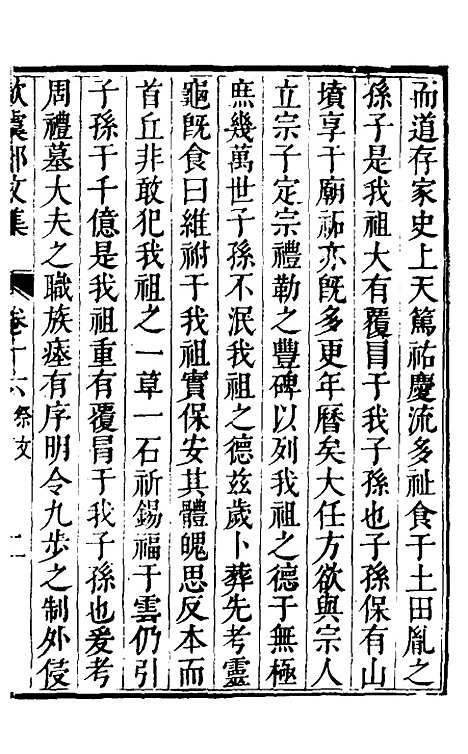 而道存家史上天篤祐慶流多祉食于土田胤之
孫子是我祖大有覆冒于我子孫也子孫保有山
墳享于廟祏亦旣多更年曆矣大任方欲與宗人
立宗子定宗禮勒之豐碑以列我祖之德于無極
庶幾萬世子孫不泯我祖之德兹歲卜葬先考靈
龜旣食曰維祔于我祖實保安其體魄思反本而
首丘非敢犯我祖之一草一石祈錫福于雲仍引
子孫于千億是我祖重有覆冒于我子孫也爰考
周禮墓大夫之職族瘞有序明令九步之制外侵
歐虞部文集
卷十六
祭文
二